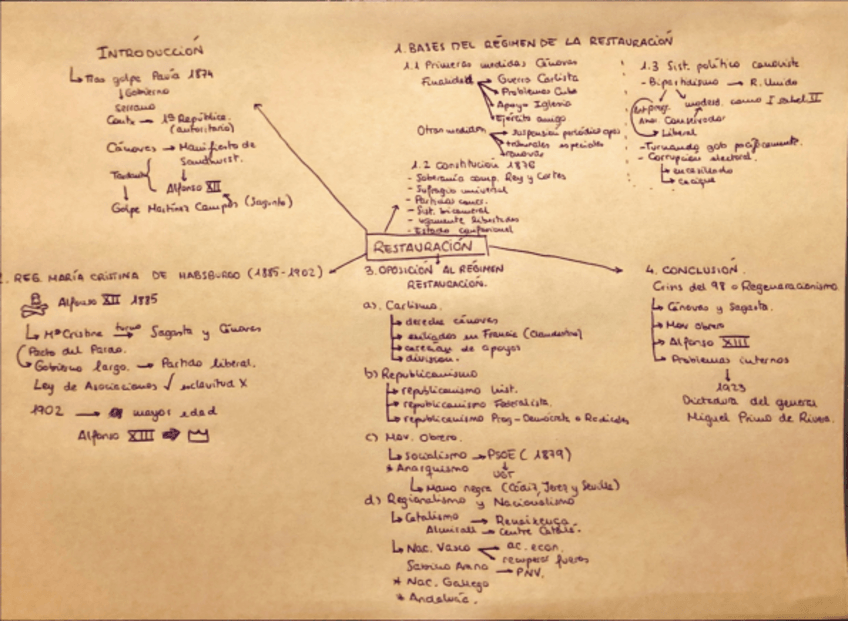 INTRODUCCIÓN
Tras golpe Pavía 1874
Gobierno
Serrano
1ª República.
(autoritaria)
Cánovas → Manifiesto de
Sandhurst.
Alfonso XII
Golpe Martínez Campos (Sagunto)
1. BASES DEL RÉGIMEN DE LA RESTAURACIÓN
1.1 Primeras medidas Cánovas
Finalidad → Guerra Carlista
→ Problemas Cuba
→ Apoyo Iglesia
→ Ejército amigo
Otras medidas → suspension periódicos opos
→ tribunales especiales
1.2 Constitucion 1876
- Soberanía comp. Rey y Cortes
- Sufragio universal
- Sist. bicameral
- Estado confesional
1.3 Sist. político canovista
- Bipartidismo → R. Unido
moderad. como Isabel II
Conservador
→ Liberal
- Turnando gob pacíficamente.
- Corrupcion electoral.
→ encasillado
→ cacique
RESTAURACIÓN
2. REG. MARÍA CRISTINA DE HABSBURGO (1885-1902)
Alfonso XII 1885
→ Mª Cristina turno → Sagasta y Cánovas
Pacto del Pardo.
→ Gobierno largo. → Partido liberal.
Ley de Asociaciones ✓ esclavitud X
1902 → mayor edad
Alfonso XIII →
3. OPOSICIÓN AL RÉGIMEN
RESTAURACIÓN.
a). Carlismo.
→ derecha cánovas
→ exiliados en Francia (Clandestino)
→ carecían de apoyos
→ division.
b) Republicanismo
→ republicanismo Unit.
→ republicanismo Federalista.
→ republicanismo Prog-Demócrata o Radicales
c) Mov. Obrero.
→ Socialismo → PSOE (1879)
↓
UGT
* Anarquismo
→ Mano negra (Cádiz, Jerez y Sevilla)
d) Regionalismo y Nacionalismo
→ Catalismo → Renaixença.
Almirall → Centre Català.
→ Nac. Vasco ac. econ.
recuperar fueros
Sabino Arana → PNV.
* Nac. Gallego
* Andaluz.
4. CONCLUSIÓN.
Crisis del 98 o Regeneracionismo
→ Cánovas y Sagasta.
→ Mov obrero
→ Alfonso XIII
→ Problemas internos
↓
1923
Dictadura del general
Miguel Primo de Rivera.